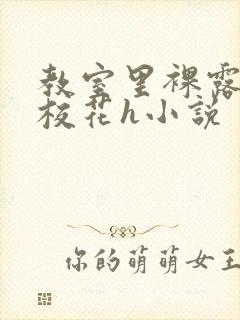 教室里裸露
校花h小説
你的萌萌女王